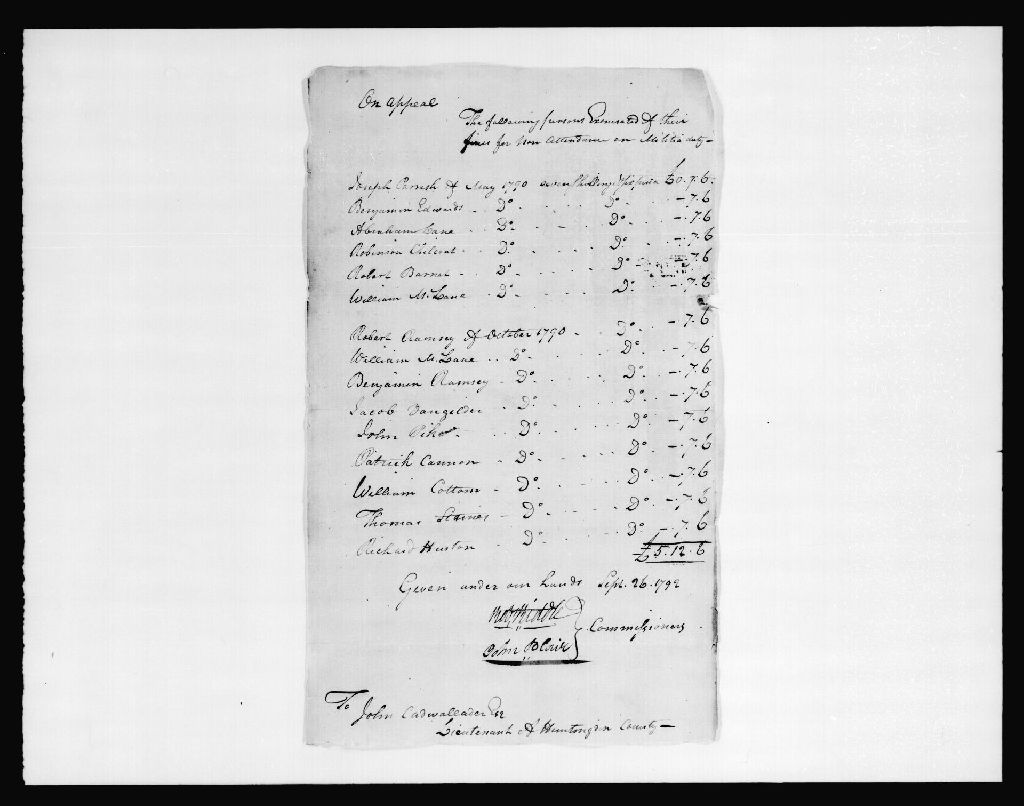 On Appeal
The following persons Exonerated of their
fines for Non Attendance on Militia duty—
Joseph Parrish of May 1790 seven Shillings & six pence £0.7.6.
Benjamin Edwards - Do Do -.7.6
Abraham Lane Do Do -.7.6
Robinson Chilcoat Do Do -.7.6
Robert Barnet Do Do - 7.6
William McLane Do Do. -.7.6
Robert Ramsey of October 1790 - Do -.7.6
William McLane Do Do. -.7.6
Benjamin Ramsey - Do. Do. -.7.6
Jacob Vangilder - Do. Do. -.7.6
John Do. Do. -.7.6
Patrick Cannon - Do. Do. -.7.6
William Cottom - Do. Do. -.7.6
Thomas - Do. Do. -.7.6
Richard Huston - Do. Do -.7.6
£5.12.6
Given under our hands Sept. 26. 1792
Riddle
John Blair
Commissioners.
To
John Cadwallader Esqr
Lieutenant of Huntingdn County—